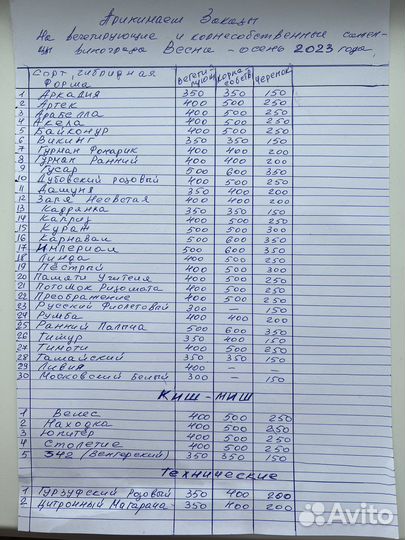 Принимаем Заказы
На вегетирующие и корнесобственные сажен-
цы винограда Весна - осень 2023 года.
Сорт, гибридная форма вегети- рующ корне- собств черенок
1 Аркадия 350 350 150
2 Артек 400 500 250
3 Арабелла 400 500 250
4 Акела 400 500 250
5 Байконур 400 500 250
6 Викинг 350 350 150
7 Гурман Фонарик 400 400 200
8 Гурман Ранний 400 400 200
9 Гусар 500 600 350
10 Дубовский розовый 400 500 250
11 Дашуня 350 400 200
12 Заря Несветая 400 400 200
13 Кадрянка 350 350 150
14 Каприз 400 500 250
15 Кураж 500 500 300
16 Карнавал 500 600 350
17 Империал 500 600 350
18 Линда 400 500 250
19 Пёстрый 400 500 300
20 Памяти Учителя 400 500 250
21 Потомок Ризамата 400 500 250
22 Преображение 400 500 250
23 Русский Фиолетовый 300 — 150
24 Румба 400 400 200
25 Ранний Палыча 500 600 350
26 Тимур 350 400 150
27 Тимоти 400 500 250
28 Тамайский 350 350 150
29 Ливия 400 — —
30 Московский Белый 300 — 150
Киш-миш
1 Велес 400 500 250
2 Находка 400 500 250
3 Юпитер 400 500 250
4 Столетие 400 500 250
5 342 (Венгерский) 350 350 150
Технические
1 Гурзуфский Розовый 350 400 200
2 Цитронный Магарача 350 400 200
Avito